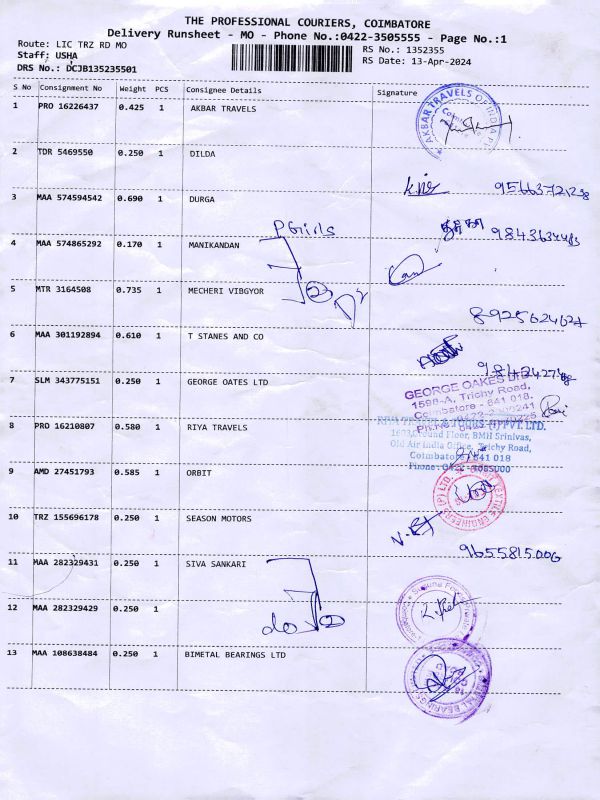 THE PROFESSIONAL COURIERS, COIMBATORE
Delivery Runsheet - MO - Phone No.:0422-3505555 - Page No.:1
Route: LIC TRZ RD MO
RS No.: 1352355
Staff: USHA
RS Date: 13-Apr-2024
DRS No.: DCJB135235501
S No Consignment No Weight PCS Consignee Details Signature
1 PRO 16226437 0.425 1 AKBAR TRAVELS
AKBAR TRAVELS OF INDIA
2 TDR 5469550 0.250 1 DILDA
9566372123
3 MAA 574594542 0.690 1 DURGA
PGirls
4 MAA 574865292 0.170 1 MANIKANDAN
5 MTR 3164508 0.735 1 MECHERI VIBGYOR
8925624627
6 MAA 301192894 0.610 1 T STANES AND CO
7 SLM 343775151 0.250 1 GEORGE OATES LTD
GEORGE OAKES LTD
1598-A, Trichy Road,
Coimbatore - 641 018.
8 PRO 16210807 0.580 1 RIYA TRAVELS
RIYA TRAVEL & TOURS (I) PVT. LTD.
1603, Ground Floor, BMH Srinivas,
Old Air India Office, Trichy Road,
Coimbatore - 641 018
9 AMD 27451793 0.585 1 ORBIT
TEXTILE ENGINEERS (P) LTD.
10 TRZ 155696178 0.250 1 SEASON MOTORS
9655815006
11 MAA 282329431 0.250 1 SIVA SANKARI
12 MAA 282329429 0.250 1
13 MAA 108638484 0.250 1 BIMETAL BEARINGS LTD